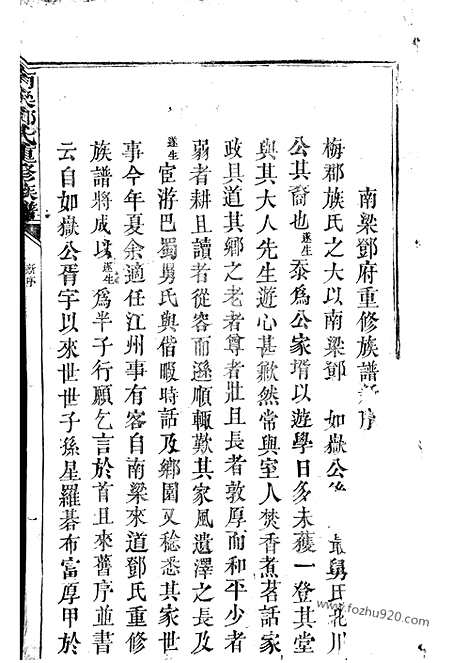 南梁鄧府重修族譜序
梅郡族氏之大以南梁鄧 如嶽公後 舅氏花川
公其裔也遂生忝爲公家壻以遊學日多未獲一登其堂
與其大人先生遊心甚歉然常與室人焚香煮茗話家
政具道其鄉之老者尊者壯且長者敦厚而和平少者
弱者耕且讀者從容而遜順輒歎其家風遺澤之長及
遂生宦游巴蜀舅氏與偕暇時話及鄉園又稔悉其家世
事今年夏余適任江州事有客自南梁來道鄧氏重修
族譜將成以遂生爲半子行願乞言於首且來舊序並書
云自如嶽公胥宇以來世世子孫星羅碁布富厚甲於
南梁鄧氏重修族譜
新序
一
www.fozhu920.com